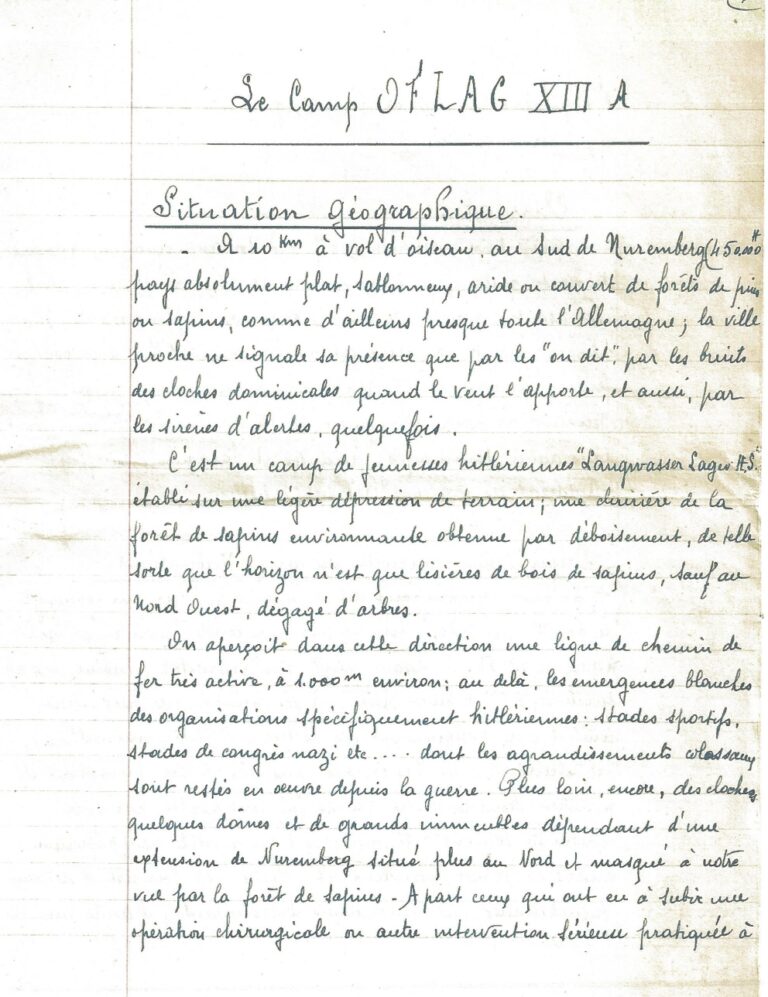 Le Camp OFLAG XIII A
Situation Géographique.
- A 10 Km à vol d'oiseau, au sud de Nuremberg (450.000 H
pays absolument plat, sablonneux, aride ou couvert de forêts de pins
ou sapins, comme d'ailleurs presque toute l'Allemagne ; la ville
proche ne signale sa présence que par les "on dit", par les bruits
des cloches dominicales quand le vent l'apporte, et aussi, par
les sirènes d'alertes, quelquefois.
C'est un camp de Jeunesses hitlériennes "Langwasser Lager H.S."
établi sur une légère dépression de terrain ; une clairière de la
forêt de sapins environnante obtenue par déboisement, de telle
sorte que l'horizon n'est que lisières de bois de sapins, sauf au
Nord Ouest, dégagé d'arbres.
On aperçoit dans cette direction une ligne de chemin de
fer très active, à 1.000 m environ ; au delà, les émergences blanches
des organisations spécifiquement hitlériennes : stades sportifs,
stades de congrès nazi etc .... dont les agrandissements colossaux
sont restés en œuvre depuis la guerre. Plus loin, encore, des clochers
quelques dômes et de grands immeubles dépendant d'une
extension de Nuremberg situé plus au Nord et masqué à notre
vue par la forêt de sapins - A part ceux qui ont eu à subir une
opération chirurgicale ou autre intervention sérieuse pratiquée à